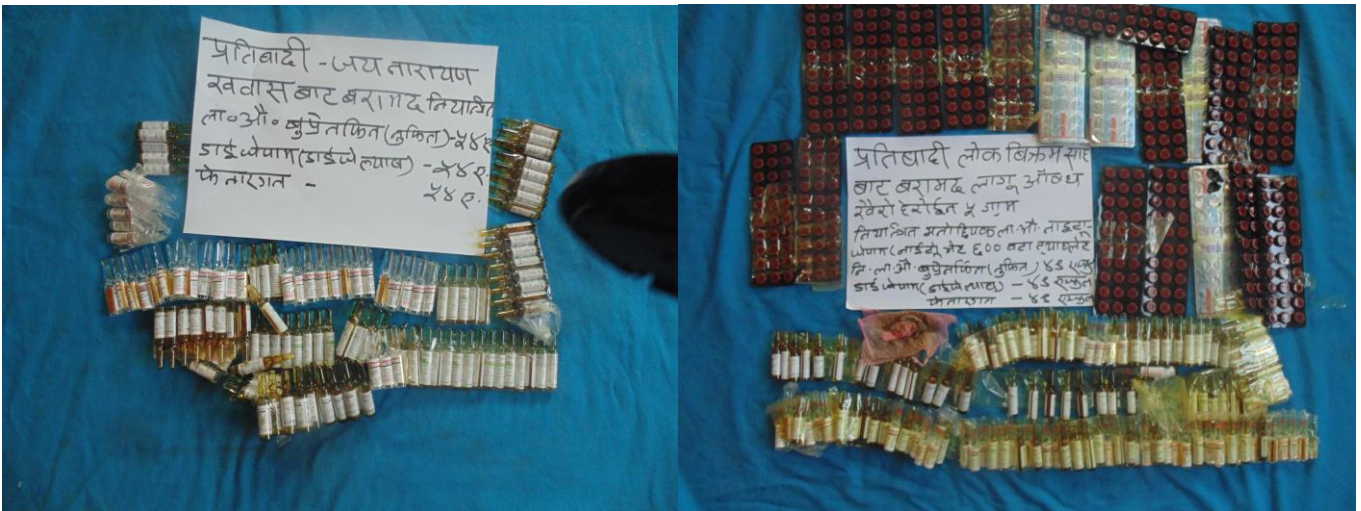 प्रतिबादी - जय नारायण
खवास बाट बरामद नियन्त्रित
ला॰औ॰ बुप्रेनर्फिन (नुर्फिन) - ५४ ए.
डाईजेपाम (डाईजेल्याब) - ५४ ए.
फेनारगन - ५४ ए.
प्रतिबादी लोक बिक्रम साह
बाट बरामद लागू औषध
खैरो हेरोईन ५ ग्राम
नियन्त्रित मनोद्विपक ला.औ. नाईट्रा-
जेपाम (नाईट्रोभेट ६०० वटा ट्याबलेट
नि.ला.औ. बुप्रेनर्फिन (नुर्फिन) ४८ एम्पुल
डाईजेपाम (डाईजेल्याब) - ४८ एम्पुल
फेनारगन - ४८ एम्पुल